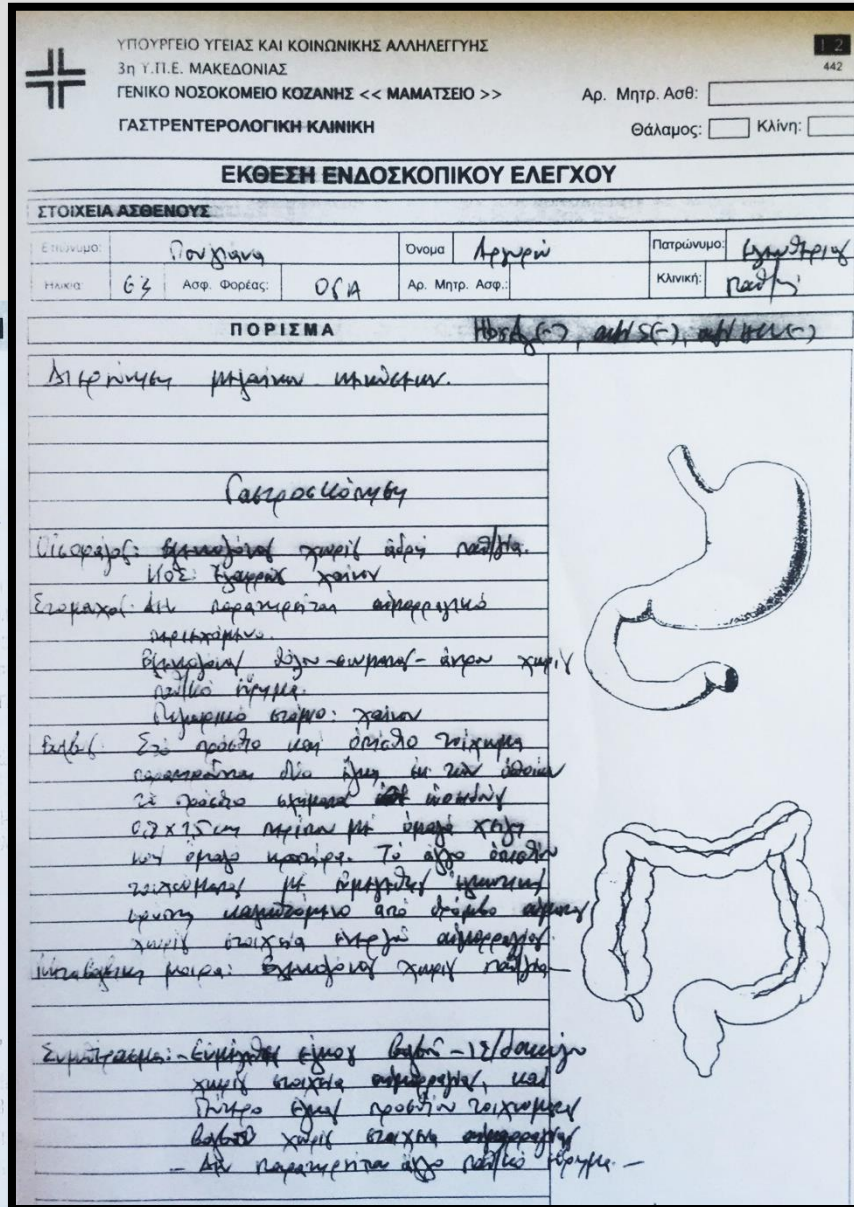 ΥΠΟΥΡΓΕΙΟ ΥΓΕΙΑΣ ΚΑΙ ΚΟΙΝΩΝΙΚΗΣ ΑΛΛΗΛΕΓΓΥΗΣ
3η Υ.Π.Ε. ΜΑΚΕΔΟΝΙΑΣ
ΓΕΝΙΚΟ ΝΟΣΟΚΟΜΕΙΟ ΚΟΖΑΝΗΣ << ΜΑΜΑΤΣΕΙΟ >>
ΓΑΣΤΡΕΝΤΕΡΟΛΟΓΙΚΗ ΚΛΙΝΙΚΗ
12
442
Αρ. Μητρ. Ασθ:
Θάλαμος: Κλίνη:
ΕΚΘΕΣΗ ΕΝΔΟΣΚΟΠΙΚΟΥ ΕΛΕΓΧΟΥ
ΣΤΟΙΧΕΙΑ ΑΣΘΕΝΟΥΣ
Επώνυμο: Όνομα Αργυρώ Πατρώνυμο:
Ηλικία: Ασφ. Φορέας: ΟΓΑ Αρ. Μητρ. Ασφ.: Κλινική:
ΠΟΡΙΣΜΑ HbsAg(-),
Διερεύνηση μελαίνων κενώσεων.
Γαστροσκόπηση
Οισοφάγος: Βλεννογόνος χωρίς αδρή παθ/γία.
ΚΟΣ: Ελαφρώς χαίνον
Στόμαχος: Δεν παρατηρείται αιμορραγικό
περιεχόμενο.
Βλεννογόνος θόλου-σώματος-άντρου χωρίς
παθ/κό εύρημα.
Πυλωρικό στόμιο: χαίνον
Βολβός: Στο πρόσθιο και οπίσθιο τοίχωμα
παρατηρούνται δύο έλκη εκ των οποίων
το πρόσθιο σχήματος ωοειδούς
περίπου με ομαλά χείλη
και ομαλό κρατήρα. Το άλλο οπισθίου
τοιχώματος με
καλυπτόμενο από θρόμβο αίματος
χωρίς στοιχεία ενεργού αιμορραγίας.
Μεταβολβική μοίρα: Βλεννογόνος χωρίς παθ/γία
Συμπέρασμα: - Ευμέγεθες έλκος βολβού - 12/δακτύλου
χωρίς στοιχεία αιμορραγίας, και
έλκος προσθίου τοιχώματος
βολβού χωρίς στοιχεία αιμορραγίας
- Δεν παρατηρείται άλλο παθ/κό εύρημα. -